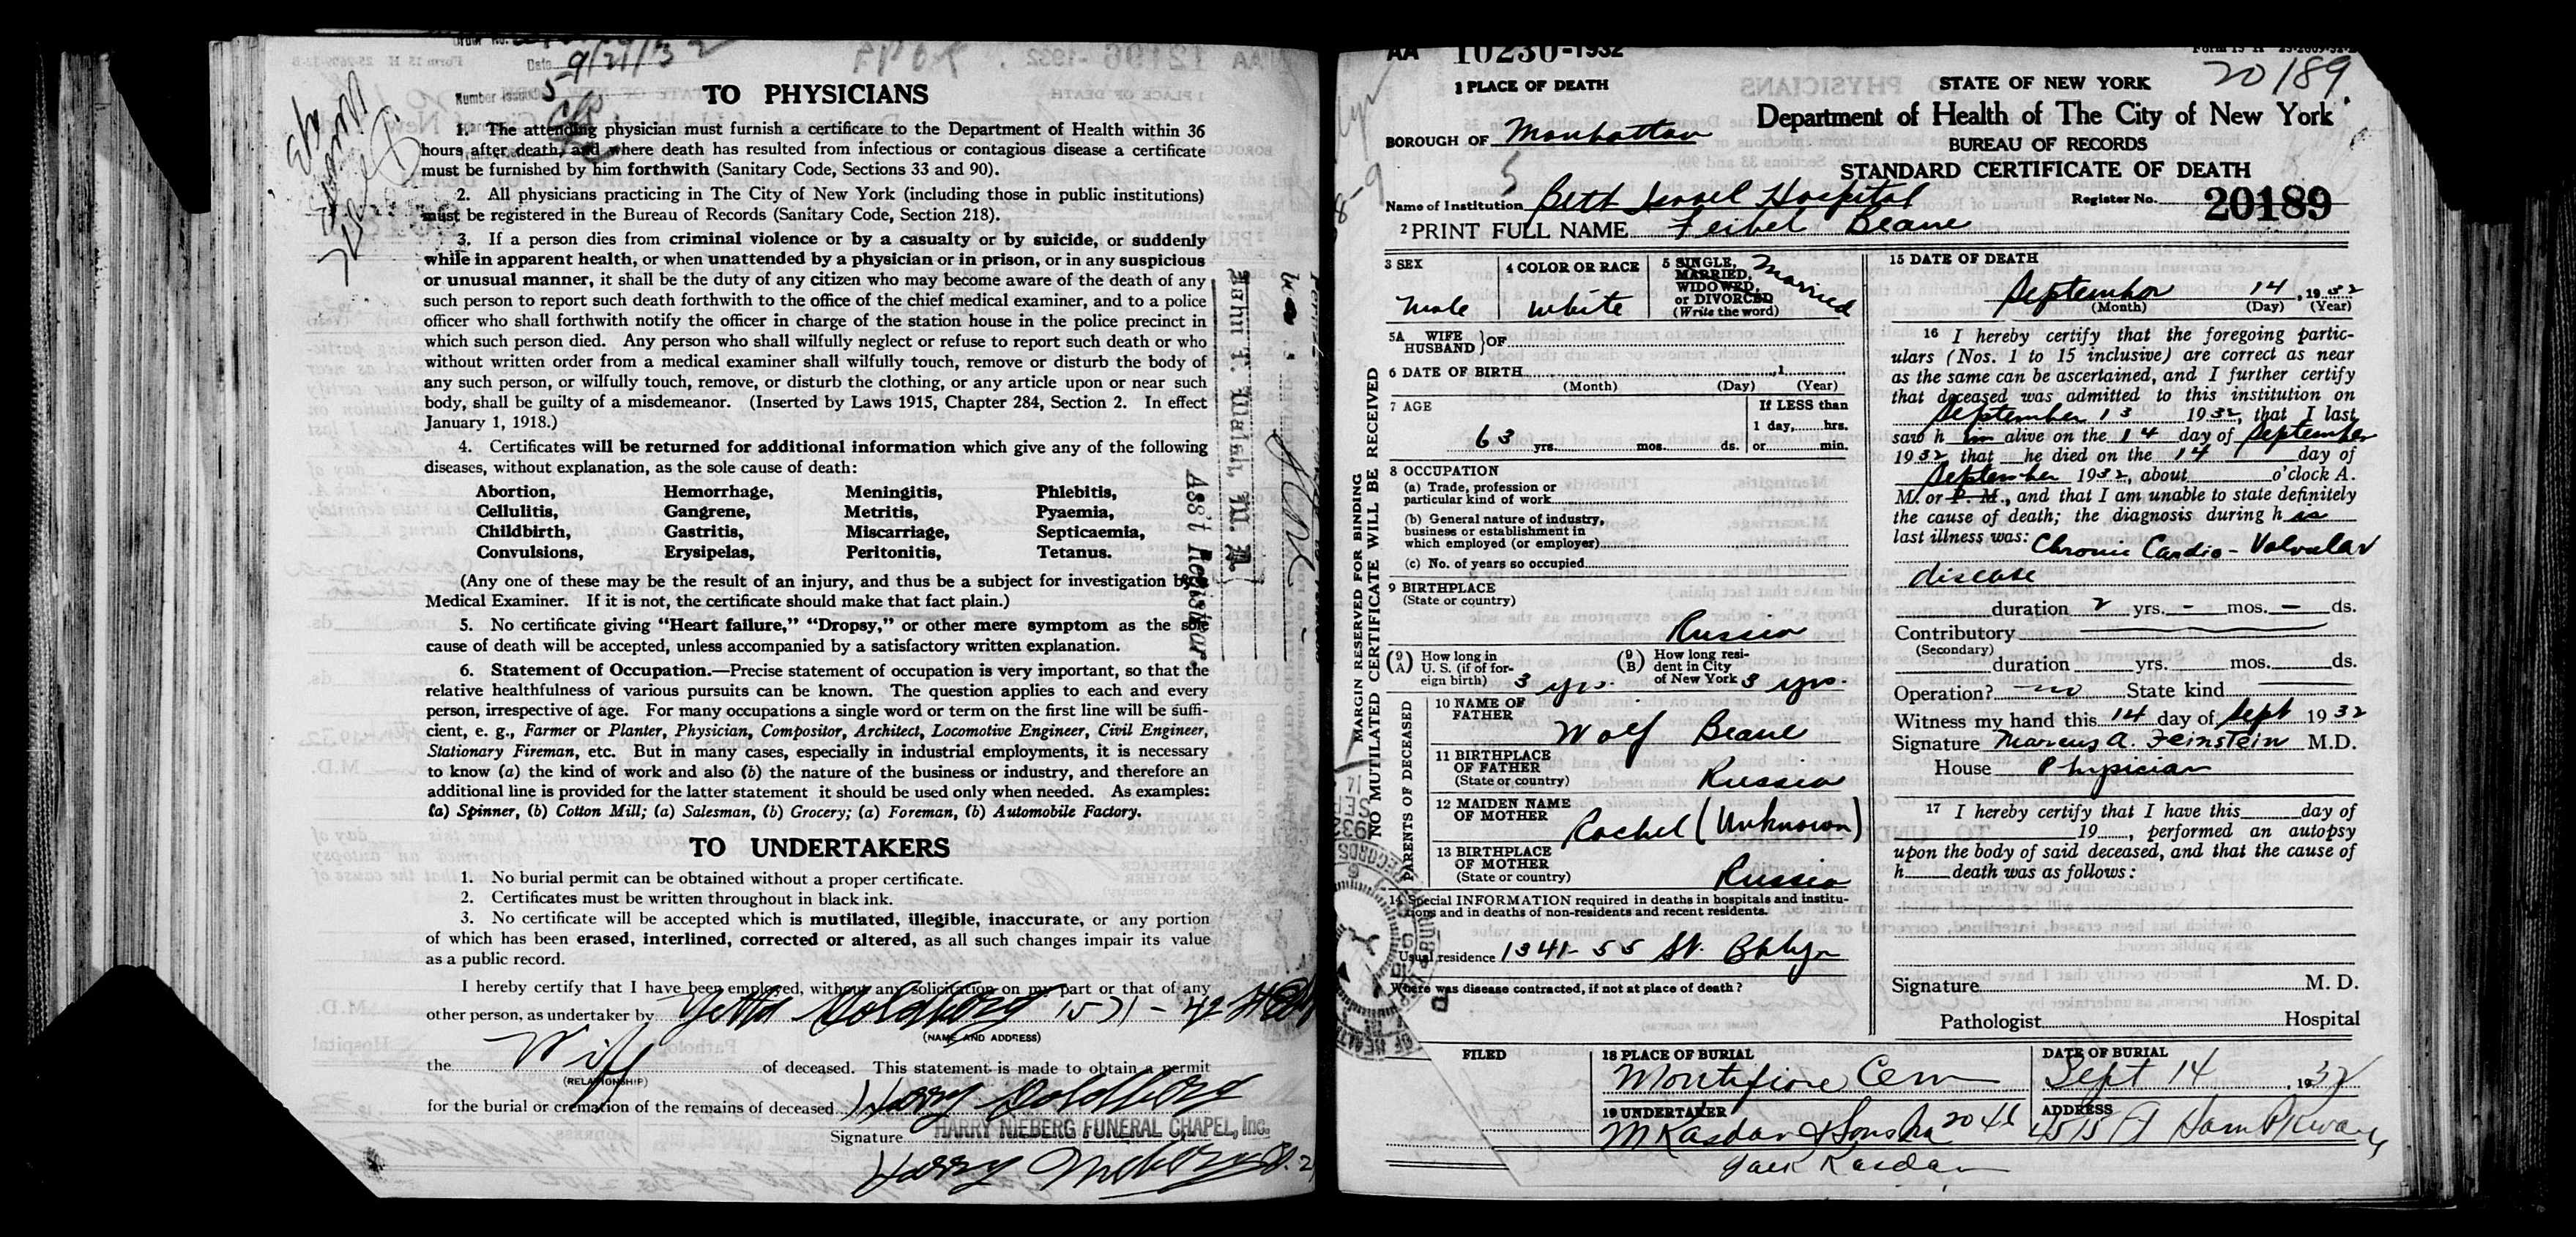 Date 9/21/32
Number Issued 5
TO PHYSICIANS
1. The attending physician must furnish a certificate to the Department of Health within 36
hours after death, and where death has resulted from infectious or contagious disease a certificate
must be furnished by him forthwith (Sanitary Code, Sections 33 and 90).
2. All physicians practicing in The City of New York (including those in public institutions)
must be registered in the Bureau of Records (Sanitary Code, Section 218).
3. If a person dies from criminal violence or by a casualty or by suicide, or suddenly
while in apparent health, or when unattended by a physician or in prison, or in any suspicious
or unusual manner, it shall be the duty of any citizen who may become aware of the death of any
such person to report such death forthwith to the office of the chief medical examiner, and to a police
officer who shall forthwith notify the officer in charge of the station house in the police precinct in
which such person died. Any person who shall wilfully neglect or refuse to report such death or who
without written order from a medical examiner shall wilfully touch, remove or disturb the body of
any such person, or wilfully touch, remove, or disturb the clothing, or any article upon or near such
body, shall be guilty of a misdemeanor. (Inserted by Laws 1915, Chapter 284, Section 2. In effect
January 1, 1918.)
4. Certificates will be returned for additional information which give any of the following
diseases, without explanation, as the sole cause of death:
Abortion, Hemorrhage, Meningitis, Phlebitis,
Cellulitis, Gangrene, Metritis, Pyaemia,
Childbirth, Gastritis, Miscarriage, Septicaemia,
Convulsions, Erysipelas, Peritonitis, Tetanus.
(Any one of these may be the result of an injury, and thus be a subject for investigation by
Medical Examiner. If it is not, the certificate should make that fact plain.)
5. No certificate giving “Heart failure,” “Dropsy,” or other mere symptom as the sole
cause of death will be accepted, unless accompanied by a satisfactory written explanation.
6. Statement of Occupation.—Precise statement of occupation is very important, so that the
relative healthfulness of various pursuits can be known. The question applies to each and every
person, irrespective of age. For many occupations a single word or term on the first line will be suffi-
cient, e. g., Farmer or Planter, Physician, Compositor, Architect, Locomotive Engineer, Civil Engineer,
Stationary Fireman, etc. But in many cases, especially in industrial employments, it is necessary
to know (a) the kind of work and also (b) the nature of the business or industry, and therefore an
additional line is provided for the latter statement it should be used only when needed. As examples:
(a) Spinner, (b) Cotton Mill; (a) Salesman, (b) Grocery; (a) Foreman, (b) Automobile Factory.
TO UNDERTAKERS
1. No burial permit can be obtained without a proper certificate.
2. Certificates must be written throughout in black ink.
3. No certificate will be accepted which is mutilated, illegible, inaccurate, or any portion
of which has been erased, interlined, corrected or altered, as all such changes impair its value
as a public record.
I hereby certify that I have been employed, without any solicitation on my part or that of any
other person, as undertaker by Yetta Goldberg 1571 - 42 St
(NAME AND ADDRESS)
the Wife of deceased. This statement is made to obtain a permit
(RELATIONSHIP)
for the burial or cremation of the remains of deceased Harry Goldberg
Signature HARRY NIEBERG FUNERAL CHAPEL, Inc.
Harry Nieberg
John T. Walsh, M. D.
Ass't Registrar
AA 10230-1932
20189
1 PLACE OF DEATH
BOROUGH OF Manhattan
STATE OF NEW YORK
Department of Health of The City of New York
BUREAU OF RECORDS
STANDARD CERTIFICATE OF DEATH
Name of Institution Beth Israel Hospital
Register No. 20189
2 PRINT FULL NAME Feibel Beane
3 SEX
Male
4 COLOR OR RACE
White
5 SINGLE, MARRIED, WIDOWED, or DIVORCED (Write the word)
Married
5A WIFE HUSBAND } OF
6 DATE OF BIRTH , 1
(Month) (Day) (Year)
7 AGE
63 yrs. mos. ds.
If LESS than
1 day, hrs.
or min.
8 OCCUPATION
(a) Trade, profession or
particular kind of work
(b) General nature of industry,
business or establishment in
which employed (or employer)
(c) No. of years so occupied
9 BIRTHPLACE
(State or country)
Russia
(9 A) How long in U. S. (if of foreign birth) 3 yrs.
(9 B) How long resident in City of New York 3 yrs.
PARENTS OF DECEASED
10 NAME OF FATHER
Wolf Beane
11 BIRTHPLACE OF FATHER
(State or country)
Russia
12 MAIDEN NAME OF MOTHER
Rachel (Unknown)
13 BIRTHPLACE OF MOTHER
(State or country)
Russia
14 Special INFORMATION required in deaths in hospitals and institu-
tions and in deaths of non-residents and recent residents.
Usual residence 1341-55 St. Bklyn
Where was disease contracted, if not at place of death?
MARGIN RESERVED FOR BINDING
NO MUTILATED CERTIFICATE WILL BE RECEIVED
15 DATE OF DEATH
September 14, 1932
(Month) (Day) (Year)
16 I hereby certify that the foregoing partic-
ulars (Nos. 1 to 15 inclusive) are correct as near
as the same can be ascertained, and I further certify
that deceased was admitted to this institution on
September 13 1932, that I last
saw h im alive on the 14 day of September
1932 that he died on the 14 day of
September 1932, about o'clock A.
M. or P. M., and that I am unable to state definitely
the cause of death; the diagnosis during h is
last illness was: Chronic Cardio-Valvular
disease
duration 2 yrs. - mos. - ds.
Contributory
(Secondary)
duration yrs. mos. ds.
Operation? no State kind
Witness my hand this 14 day of Sept 1932
Signature Marcus A. Feinstein M.D.
House Physician
17 I hereby certify that I have this day of
19 , performed an autopsy
upon the body of said deceased, and that the cause of
h death was as follows:
Signature M. D.
Pathologist Hospital
FILED
18 PLACE OF BURIAL
Montifiore Cem
DATE OF BURIAL
Sept 14, 1932
19 UNDERTAKER
M Kasdan & Sons
ADDRESS
4515 Ft Ham Pkway
Jack Kasdan